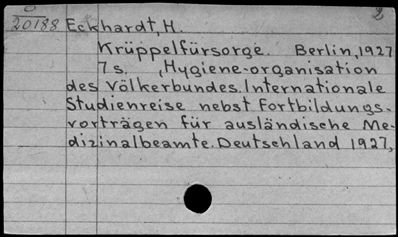 2
20188 Eckhardt, H.
Krüppelfürsorge. Berlin, 1927
7s. (Hygiene-organisation
des Völkerbundes. Internationale
Studienreise nebst Fortbildungs-
vorträgen für ausländische Me-
dizinalbeamte. Deutschland 1927,